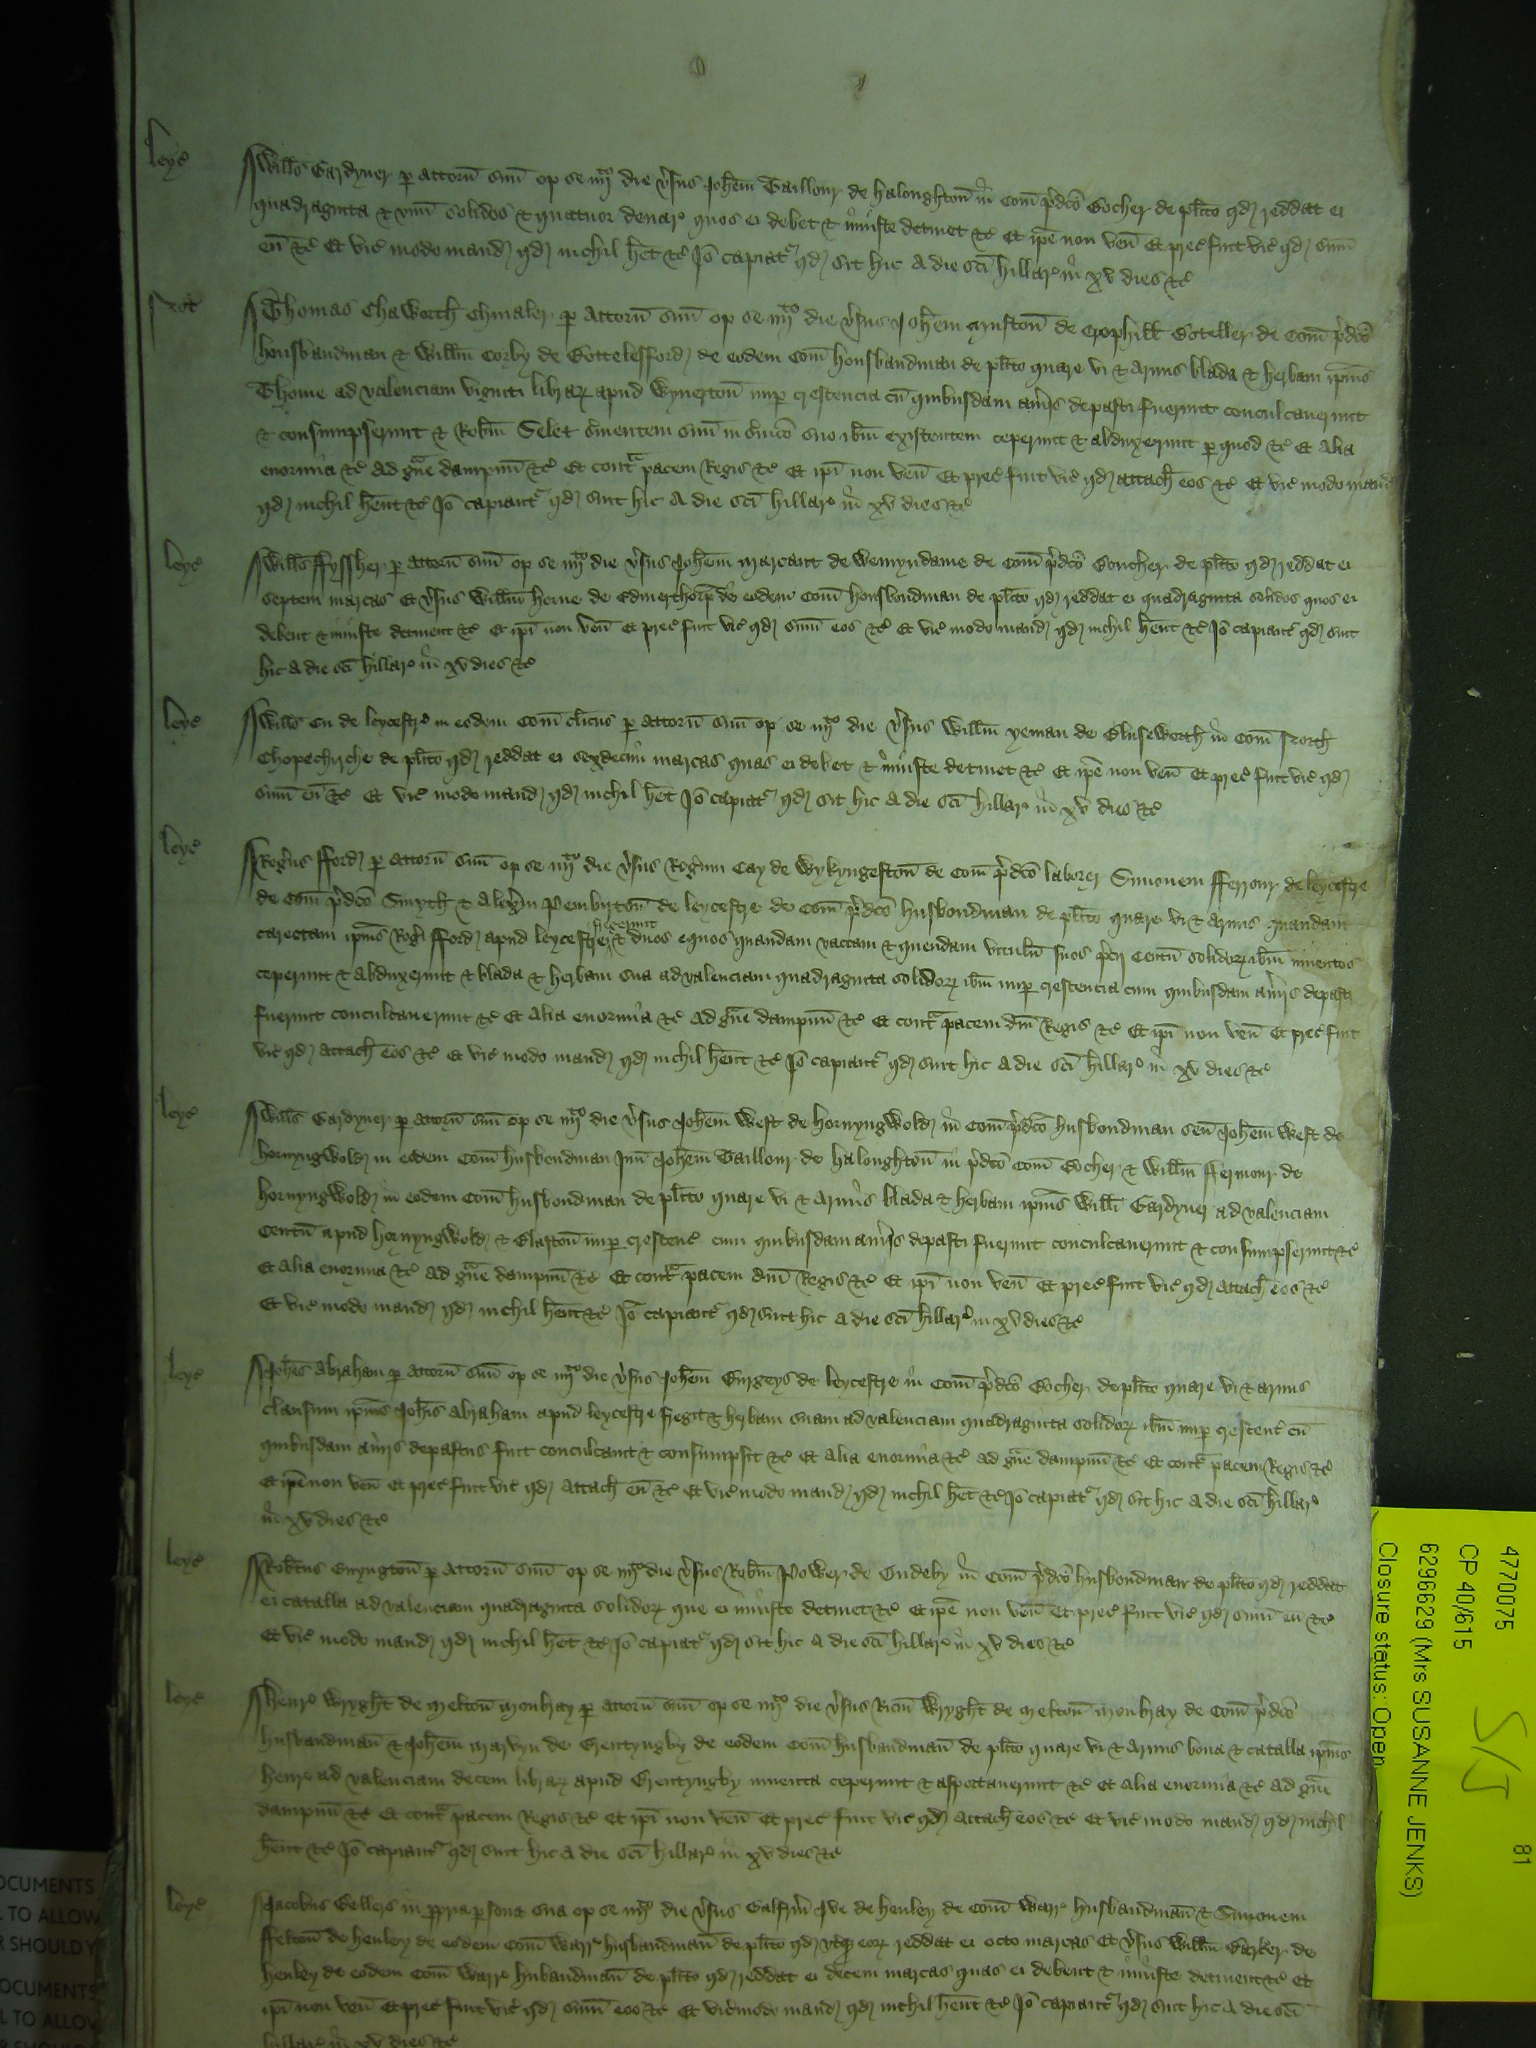 leyc̃
Wills̃ Gardyner p attorñ suũ op se iiijto die ṽsus Joheñ Taillour de haloughtoñ in Com̃ p̃dc̃o Bocher de pl̃ito qd̃ reddat ei
quadraginta & solidos & quatuor denar̃ quos ei debet & iniuste detinet &c̃ Et ip̃e non veñ Et prec̃ fuit vic̃ qd̃ sum̃
eũ &c̃ Et vic̃ modo mand̃ qd̃ nichil h̃et &c̃ Jõ capiatr̃ qd̃ sit hic A die sc̃i hillar̃ in xv dies &c̃
Not̃
Thomas Chaworth Chiualer p Attorñ suũ op se iiijto die ṽsus Joheñ de Crophill Boteller de Com̃ p̃dc̃o
housbandman & Willm̃ Corby de Bottelesford̃ de eodem Com̃ housbandman de pl̃ito quare vi & Armis blada & herbam ip̃ius
Thome ad valenciam viginti librar̃ apud Wyuertoñ nup crescencia cũ quibusdam aĩalis depasti fuerunt conculcauerunt
& consumpserunt & Rob̃tm Selet s̃uientem suũ in s̃uic̃o suo ib̃m existentem ceperunt & abduxerunt p quod &c̃ Et Alia
enormia &c̃ ad g̃ue dampnũ &c̃ Et cont̃ pacem Regis &c̃ Et ip̃i non veñ Et prec̃ fuit vic̃ qd̃ attach̃ eos &c̃ Et vic̃ modo mand̃
qd̃ nichil h̃ent &c̃ Jõ capiantr̃ qd̃ sint hic A die sc̃i hillar̃ in xv dies &c̃
leyc̃
Wills̃ ffyssher p attorñ suũ op se iiijto die ṽsus Joheñ Marcant de Wemyndame de Com̃ p̃dc̃o Boucher de pl̃ito qd̃ reddat ei
septem marcas Et ṽsus Willm̃ herne de Edmerthorp de eodem Com̃ housbondman de pl̃ito qd̃ reddat ei quadraginta solidos quos ei
debent & iniuste detinent &c̃ Et ip̃i non veñ Et prec̃ fuit vic̃ qd̃ sum̃ eos &c̃ Et vic̃ modo mand̃ qd̃ nichil h̃ent &c̃ Jõ capiantr̃ qd̃ sint
hic A die sc̃i hillar̃ in xv dies &c̃
leyc̃
Wills̃ de leycestr̃ in eodem Com̃ cl̃icus p attorñ suũ op se iiijto die ṽsus Willm̃ yeman de Cluseworth in Com̃ North
Chopechirche de pl̃ito qd̃ reddat ei sexdecim marcas quas ei debet & iniuste detinet &c̃ Et ip̃e non veñ Et prec̃ fuit vic̃ qd̃
sum̃ eũ &c̃ Et vic̃ modo mand̃ qd̃ nichil h̃et Jõ capiatr̃ qd̃ sit hic A die sc̃i hillar̃ in xv dies &c̃
leyc̃
Rog̃us fford̃ p attorñ suũ op se iiijto die ṽsus Rog̃um Cay de Wykyngestoñ de Com̃ p̃dc̃o laborer Simonem fferrour de leycestre
de Com̃ p̃dc̃o Smyth & Alex̃m Pembirtoñ de leycestre de Com̃ p̃dc̃o husbondman de pl̃ito quare vi & Armis quandam
carectam ip̃ius Rog̃i fford̃ apud leycestre fregerunt & duos equos quandam vaccam & quendam vitulũ suos p̃cij Centũ solidor̃ ib̃m inuentos
ceperunt & abduxerunt & blada & herbam sua ad valenciam quadraginta solidor̃ ib̃m nup crescencia cum quibusdam aĩalis depasti
fuerunt conculcauerunt &c̃ Et Alia enormia &c̃ Ad g̃ue dampnũ &c̃ Et cont̃ pacem dñi Regis &c̃ Et ip̃i non veñ Et prec̃ fuit
vic̃ qd̃ attach̃ eos &c̃ Et vic̃ modo mand̃ qd̃ nichil h̃ent &c̃ Jõ capiantr̃ qd̃ sint hic A die sc̃i hillar̃ in xv dies &c̃
leyc̃
Wills̃ Gardyner p attorñ suũ op se iiijto die ṽsus Joheñ West de hornyngwold̃ in Com̃ p̃dc̃o husbondman señ Joheñ West de
hornyngwold̃ in eodem Com̃ husbondman Juñ Joheñ Taillour de haloughtoñ in p̃dc̃o Com̃ Bocher & Willm̃ ffermour de
hornyngwold̃ in eodem Com̃ husbondman de pl̃ito quare vi & Armis blada & herbam ip̃ius Willi Gardyner ad valenciam
Centũ apud hornyngwold̃ & Blastoñ nup crescenc̃ cum quibusdam aĩalis depasti fuerunt conculcauerunt & consumpserunt &c̃
Et Alia enormia &c̃ ad g̃ue dampnũ &c̃ Et cont̃ pacem dñi Regis &c̃ Et ip̃i non veñ Et prec̃ fuit vic̃ qd̃ Attach̃ eos &c̃
Et vic̃ modo mand̃ qd̃ nichil h̃ent &c̃ Jõ capiantr̃ qd̃ sint hic A die sc̃i hillar̃ in xv dies &c̃
leyc̃
Joh̃es Abraham p attorñ suũ op se iiijto die ṽsus Joheñ Burgeys de leycestre in Com̃ p̃dc̃o Bocher de pl̃ito quare vi & armis
clausum ip̃ius Joh̃is Abraham apud leycestre fregit & herbam suam ad valenciam quadraginta solidor̃ ib̃m nup crescent̃ cũ
quibusdam aĩalis depastus fuit conculcauit & consumpsit &c̃ Et Alia enormia &c̃ ad g̃ue dampnũ &c̃ Et cont̃ pacem Regis &c̃
Et ip̃e non veñ Et prec̃ fuit vic̃ qd̃ Attach̃ eũ &c̃ Et vic̃ modo mand̃ qd̃ nichil h̃et &c̃ Jõ capiatr̃ qd̃ sit hic A die sc̃i hillar̃
in xv dies &c̃
leyc̃
Rob̃tus Gnyngtoñ p attorñ suũ op se iiijto die ṽsus Rob̃tm Power de Cudeby in Com̃ p̃dc̃o husbondman de pl̃ito qd̃ reddat
ei catalla ad valenciam quadraginta solidor̃ que ei iniuste detinet &c̃ Et ip̃e non veñ Et prec̃ fuit vic̃ qd̃ sum̃ eũ &c̃
Et vic̃ modo mand̃ qd̃ nichil h̃et &c̃ Jõ capiatr̃ qd̃ sit hic A die sc̃i hillar̃ in xv dies &c̃
leyc̃
Henr̃ Wryght de Meltoñ Moubray p attorñ suũ op se iiijto die ṽsus Ric̃m Wryght de Meltoñ Moubray de Com̃ p̃dc̃o
husbandmañ & Joheñ Marvyn de Brentyngby de eodem Com̃ husbandmañ de pl̃ito quare vi & Armis bona & catalla ip̃ius
Henr̃ ad valenciam decem librar̃ apud Brentyngby inuenta ceperunt & asportauerunt &c̃ Et Alia enormia &c̃ Ad g̃ue
dampnũ &c̃ Et cont̃ pacem Regis &c̃ Et ip̃i non veñ Et prec̃ fuit vic̃ qd̃ Attach̃ eos &c̃ Et vic̃ modo mand̃ qd̃ nichil
h̃ent &c̃ Jõ capiantr̃ qd̃ sint hic A die sc̃i hillar̃ in xv dies &c̃
leyc̃
Jacobus Bellers in ppria psona sua op se iiijto die ṽsus Galfrm̃ Jve de henley de Com̃ Warr̃ husbandmañ & Simonem
ffeltoñ de henley de eodem Com̃ Warr̃ husbandmañ de pl̃ito qd̃ vtq eor̃ reddat ei octo marcas Et ṽsus Willm̃ Barker de
henley de eodem Com̃ Warr̃ hubandmañ de pl̃ito qd̃ reddat ei decem marcas quas ei debent & iniuste detinent &c̃ Et
ip̃i non veñ Et prec̃ fuit vic̃ qd̃ sum̃ eos &c̃ Et vic̃ modo mand̃ qd̃ nichil h̃ent &c̃ Jõ capiantr̃ qd̃ sint hic A die sc̃i
hillar̃ in xv dies &c̃
4770075
CP 40/615
6296629 (Mrs SUSANNE JENKS)
Closure status: Open
S/J
81
OCUMENTS
TO ALLOW
R SHOULD
OCUMENTS
L TO ALLOW
R SHOULD